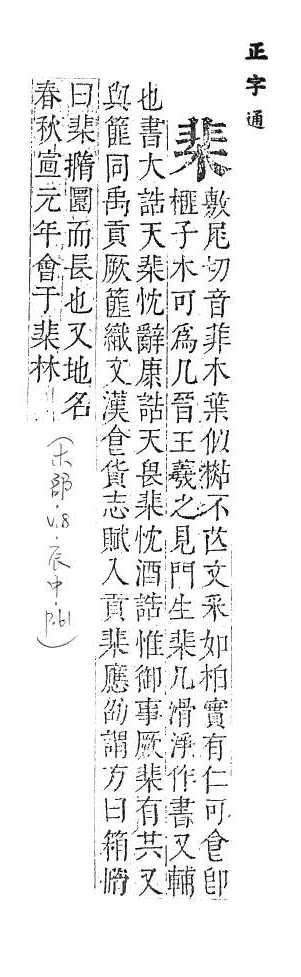 正字通
棐
敷尾切音菲木葉似不文采如柏實有仁可食卽
榧子木可爲几晉王羲之見門生棐几滑淨作書又輔
也書大誥天棐忱辭康誥天畏棐忱酒誥惟御事厥棐有共又
與篚同禹貢厥篚織文漢食貨志賦入貢棐應劭謂方曰箱撱
曰棐撱圜而長也又地名
春秋宣元年會于棐林
(木部·v.8·辰中·p.61)